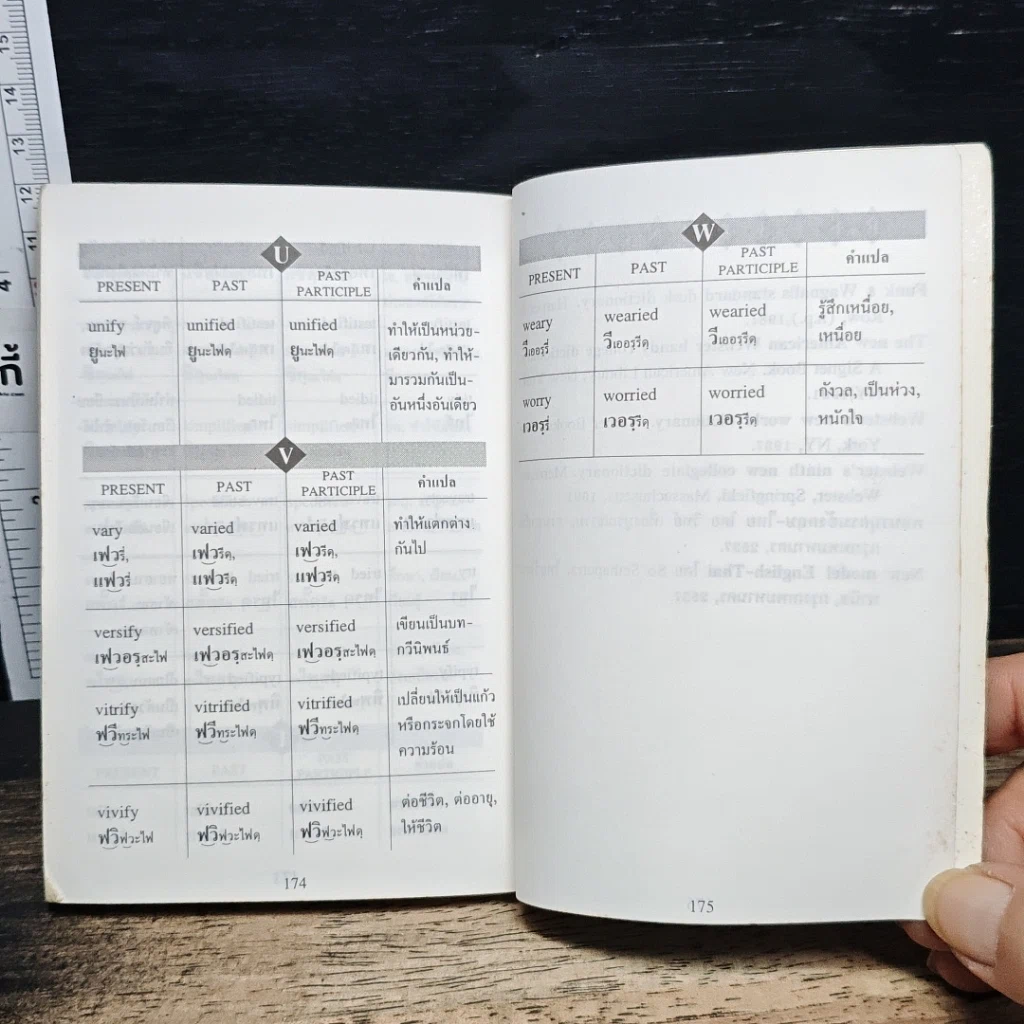 U
PRESENT PAST PAST PARTICIPLE คำแปล
unify unified unified ทำให้เป็นหน่วย-
ยูนะไฟ ยูนะไฟดฺ ยูนะไฟดฺ เดียวกัน, ทำให้-
มารวมกันเป็น-
อันหนึ่งอันเดียว
V
PRESENT PAST PAST PARTICIPLE คำแปล
vary varied varied ทำให้แตกต่าง
เฟฺวรี่, เฟฺวรีดฺ, เฟฺวรีดฺ, กันไป
แฟฺวรี่ แฟฺวรีดฺ แฟฺวรีดฺ
versify versified versified เขียนเป็นบท-
เฟฺวอรฺสะไฟ เฟฺวอรฺสะไฟดฺ เฟฺวอรฺสะไฟดฺ กวีนิพนธ์
vitrify vitrified vitrified เปลี่ยนให้เป็นแก้ว
ฟฺวีทระไฟ ฟฺวีทระไฟดฺ ฟฺวีทระไฟดฺ หรือกระจกโดยใช้
ความร้อน
vivify vivified vivified ต่อชีวิต, ต่ออายุ,
ฟฺวิฟฺวะไฟ ฟฺวิฟฺวะไฟดฺ ฟฺวิฟฺวะไฟดฺ ให้ชีวิต
174
W
PRESENT PAST PAST PARTICIPLE คำแปล
weary wearied wearied รู้สึกเหนื่อย,
วีเออรฺรี่ วีเออรฺรีดฺ วีเออรฺรีดฺ เหนื่อย
worry worried worried กังวล, เป็นห่วง,
เวอรฺรี่ เวอรฺรีดฺ เวอรฺรีดฺ หนักใจ
175
15
14
13
12
11
4
2